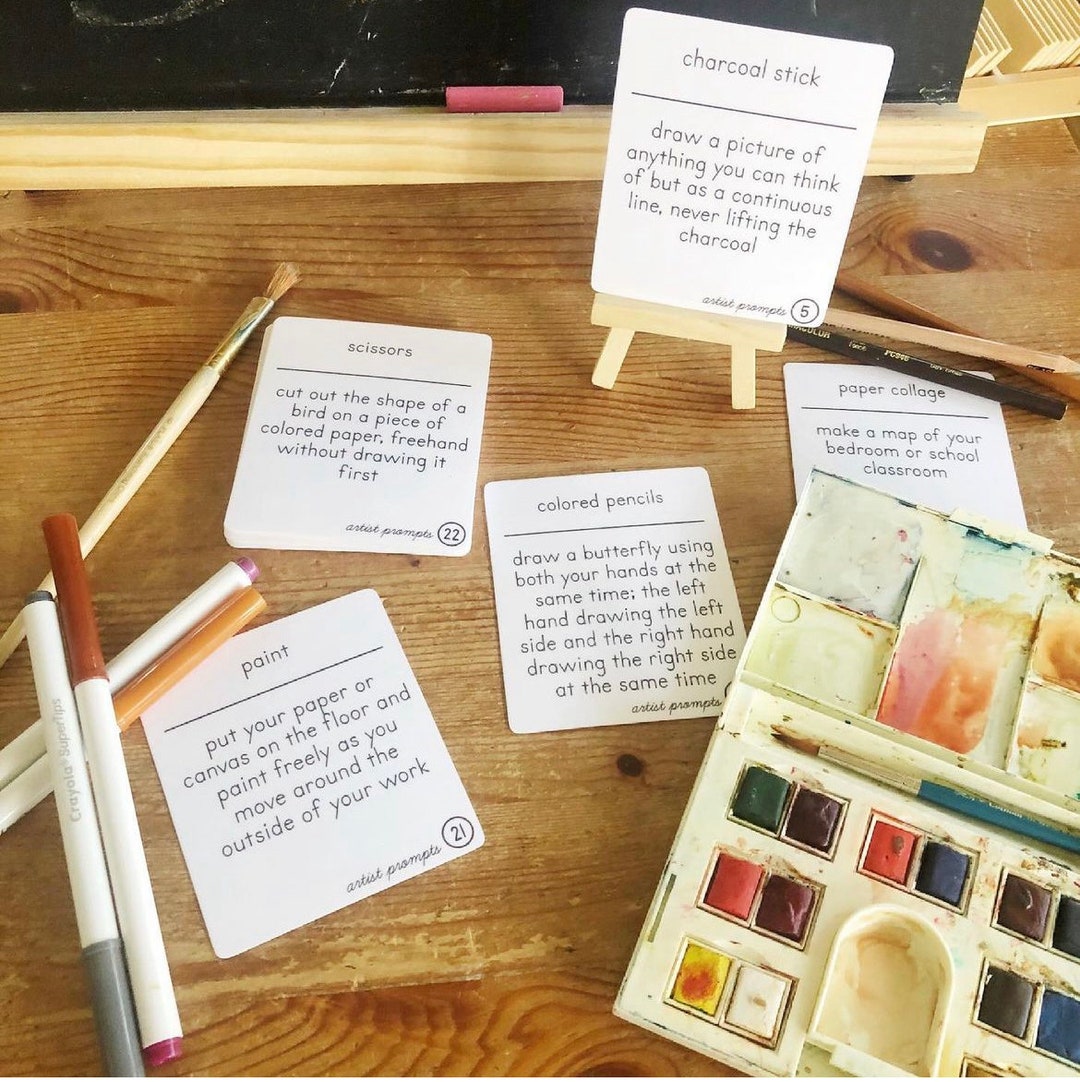 charcoal stick
draw a picture of
anything you can think
of but as a continuous
line, never lifting the
charcoal
artist prompts 5
scissors
cut out the shape of a
bird on a piece of
colored paper, freehand
without drawing it
first
artist prompts 22
paper collage
make a map of your
bedroom or school
classroom
colored pencils
draw a butterfly using
both your hands at the
same time; the left
hand drawing the left
side and the right hand
drawing the right side
at the same time
artist prompts
paint
put your paper or
canvas on the floor and
paint freely as you
move around the
outside of your work
artist prompts 21
Crayola Supertips